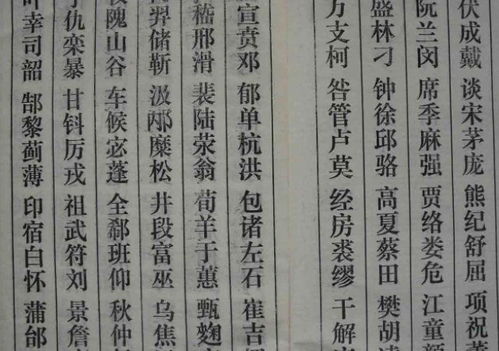 伏成戴谈宋茅庞熊纪舒屈项祝
阮兰闵席季麻强贾络娄危江童
盛林刁钟徐邱骆高夏蔡田樊胡
万支柯昝管卢莫经房裘缪干解
宣贲邓郁单杭洪包诸左石崔吉
嵇邢滑裴陆荥翁荀羊于蕙甄麹
羿储靳汲邴糜松井段富巫乌焦
隗山谷车候宓蓬全郗班仰秋仲
仇栾暴甘钭厉戎祖武符刘景詹
幸司韶郜黎蓟薄印宿白怀蒲邰